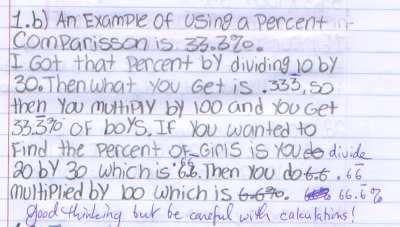 1.b) An Example of using a percent in
Comparisson is 33.3%.
I Got that Percent by dividing 10 by
30. Then what you Get is .333, so
then you multiply by 100 and you Get
33.3% OF boys. If you wanted to
Find the Percent of Girls is you do divide
20 by 30 which is .66. Then you do 6.6 .66
multiplied by 100 which is 6.6%. 66.6%
good thinking but be careful with calculations!